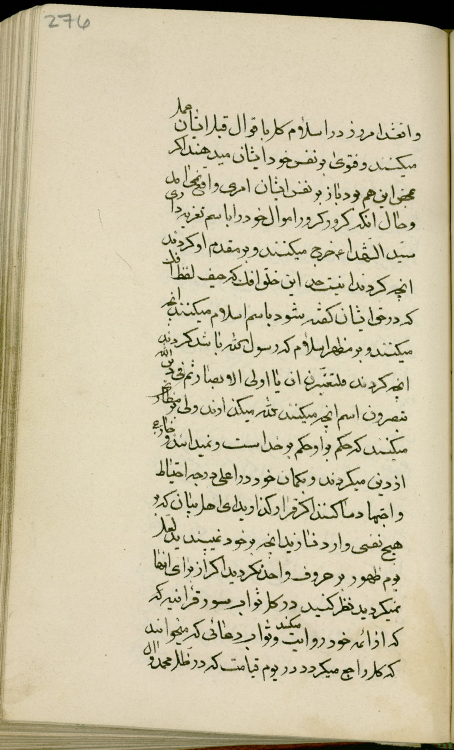 276
واقعند امروز در اسلام کل با قوال قبل ایشان عمل
میکنند و فتوی بر نفس خود ایشان میدهند اگر
محض این هم بود باز بر نفس ایشان امری واقع
و حال انکه کرور کرور اموال خود را باسم تعزیه داری
سید الشهداء خرج میکنند و بر مقدم او کردند
انچه کردند اینست حد این خلق افک که حیف لفظ
که در حق ایشان گفته شود باسم اسلام میکنند انچه
میکنند و بر مظهر اسلام که رسول الله باشد کردند
انچه کردند فلتعتبرن ان یا اولی الابصار ثم فی دین الله
تبصرون اسم انچه میکنند لله میگذارند ولی بر مظاهر
میکنند که حکم بر او حکم بر خدا است و نمیدانند و
از دین میگردند و بگمان خود در اعلی درجه احتیاط
و اجتهاد ماکنند اگر قرار گذارید ای اهل بیان که بر
هیچ نفسی وارد نیارید انچه بر خود نمیپسندید لعل
یوم ظهور بر حروف واحد نکردید اگر از برای انها
نمیگردید نظر کنید در کل ثواب سور قرانیه که
که از ائمه خود روایت میکنند و ثواب دعائی که میخوانند
که کل راجع میگردد در یوم قیامت که در ظل محمد و ال